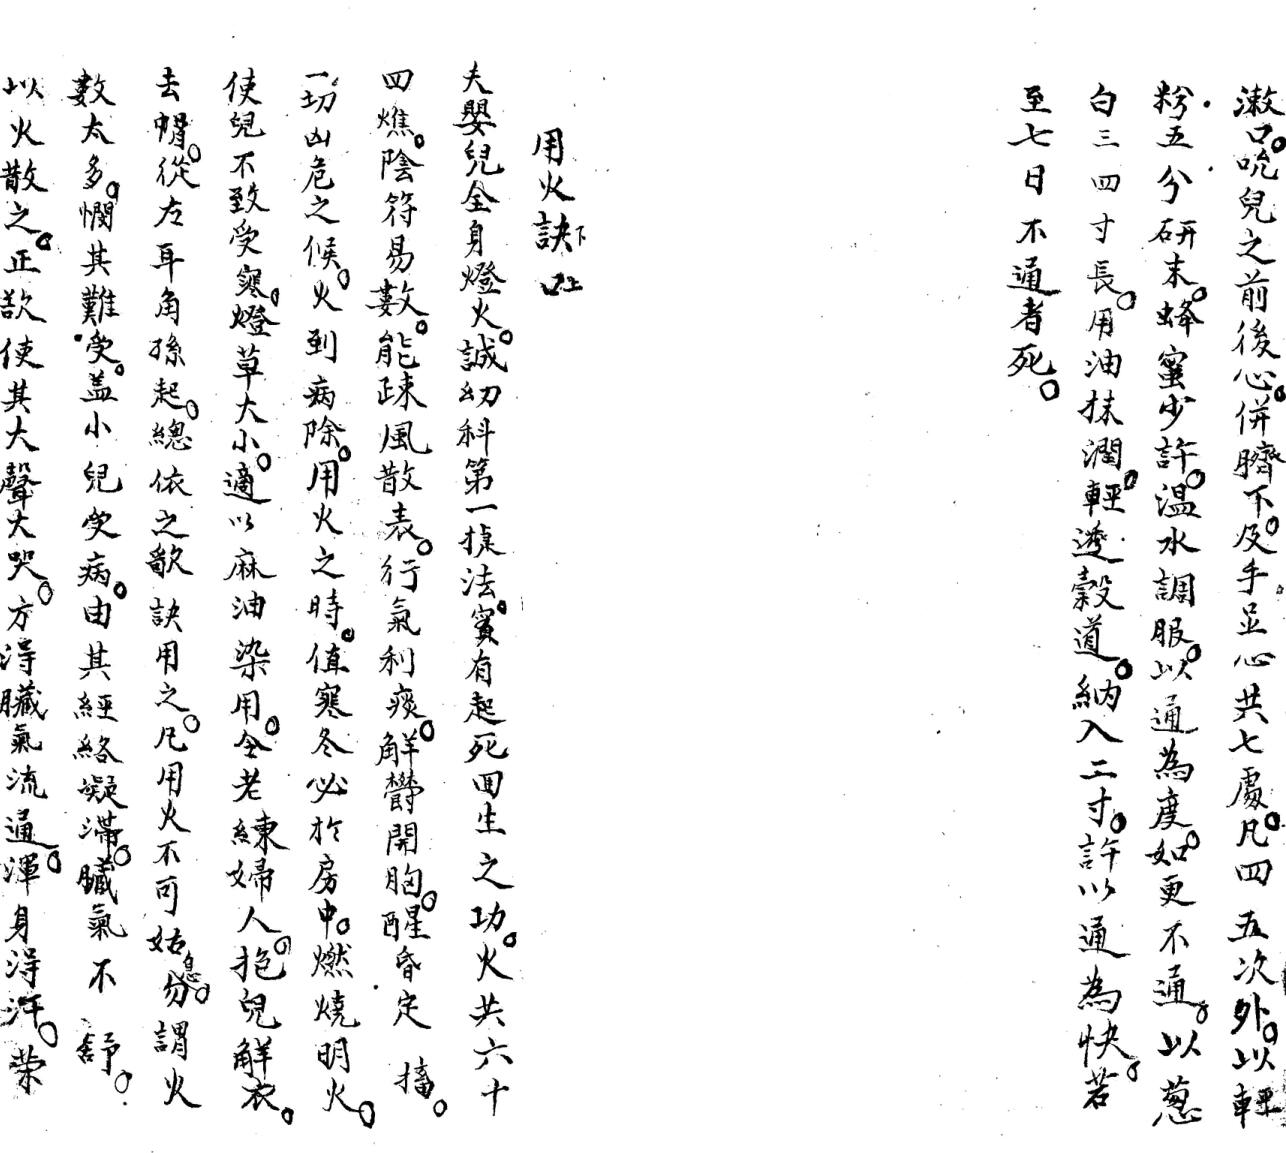 漱口。吮兒之前後心。併臍下。及手足心共七處。凡四五次外。以輕
粉五分研末。蜂蜜少許。温水調服。以通為度。如更不通。以葱
白三四寸長。用油抹潤。輕透穀道。納入二寸。許以通為快。若
至七日不通者死。
用火訣
夫嬰兒全身燈火。誠幼科第一㨗法。實有起死回生之功。火共六十
四燋。陰符易數。能疎風散表。行氣利痰。解欝開胸。醒昏定搐。
一切凶危之候。火到病除。用火之時。值寒冬必於房中。燃燒明火。
使兒不致受寒。燈草大小。適以麻油染用。令老練婦人。抱兒解衣。
去帽。從左耳角孫起。總依之歌訣用之。凡用火不可姑息。勿謂火
數太多。憫其難受。盖小兒受病。由其經絡凝滯。臟氣不舒。
以火散之。正欲使其大聲大哭。方得臟氣流通。渾身得汗。荣